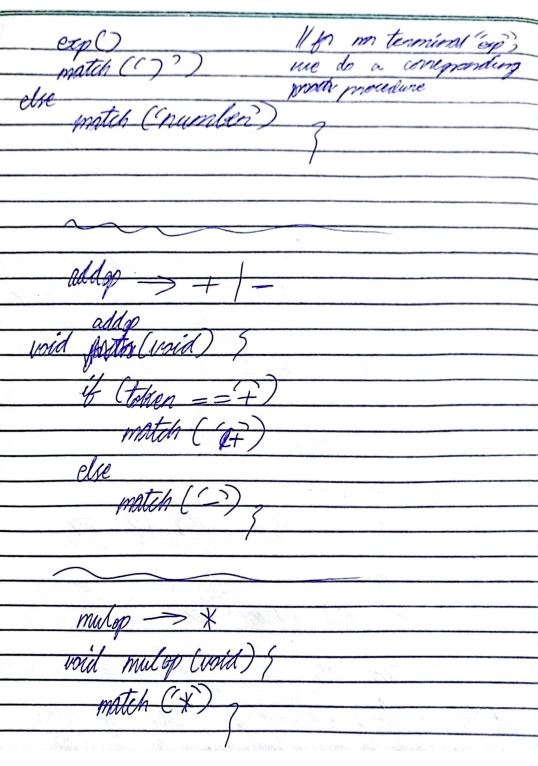 exp()
match (')')
else
match ('number')
}
// for non terminal "exp",
we do a corresponding
procedure
addop → + | -
addop
void (void) {
if (token == '+')
match ('+')
else
match ('-')
}
mulop → *
void mulop (void) {
match ('*')
}